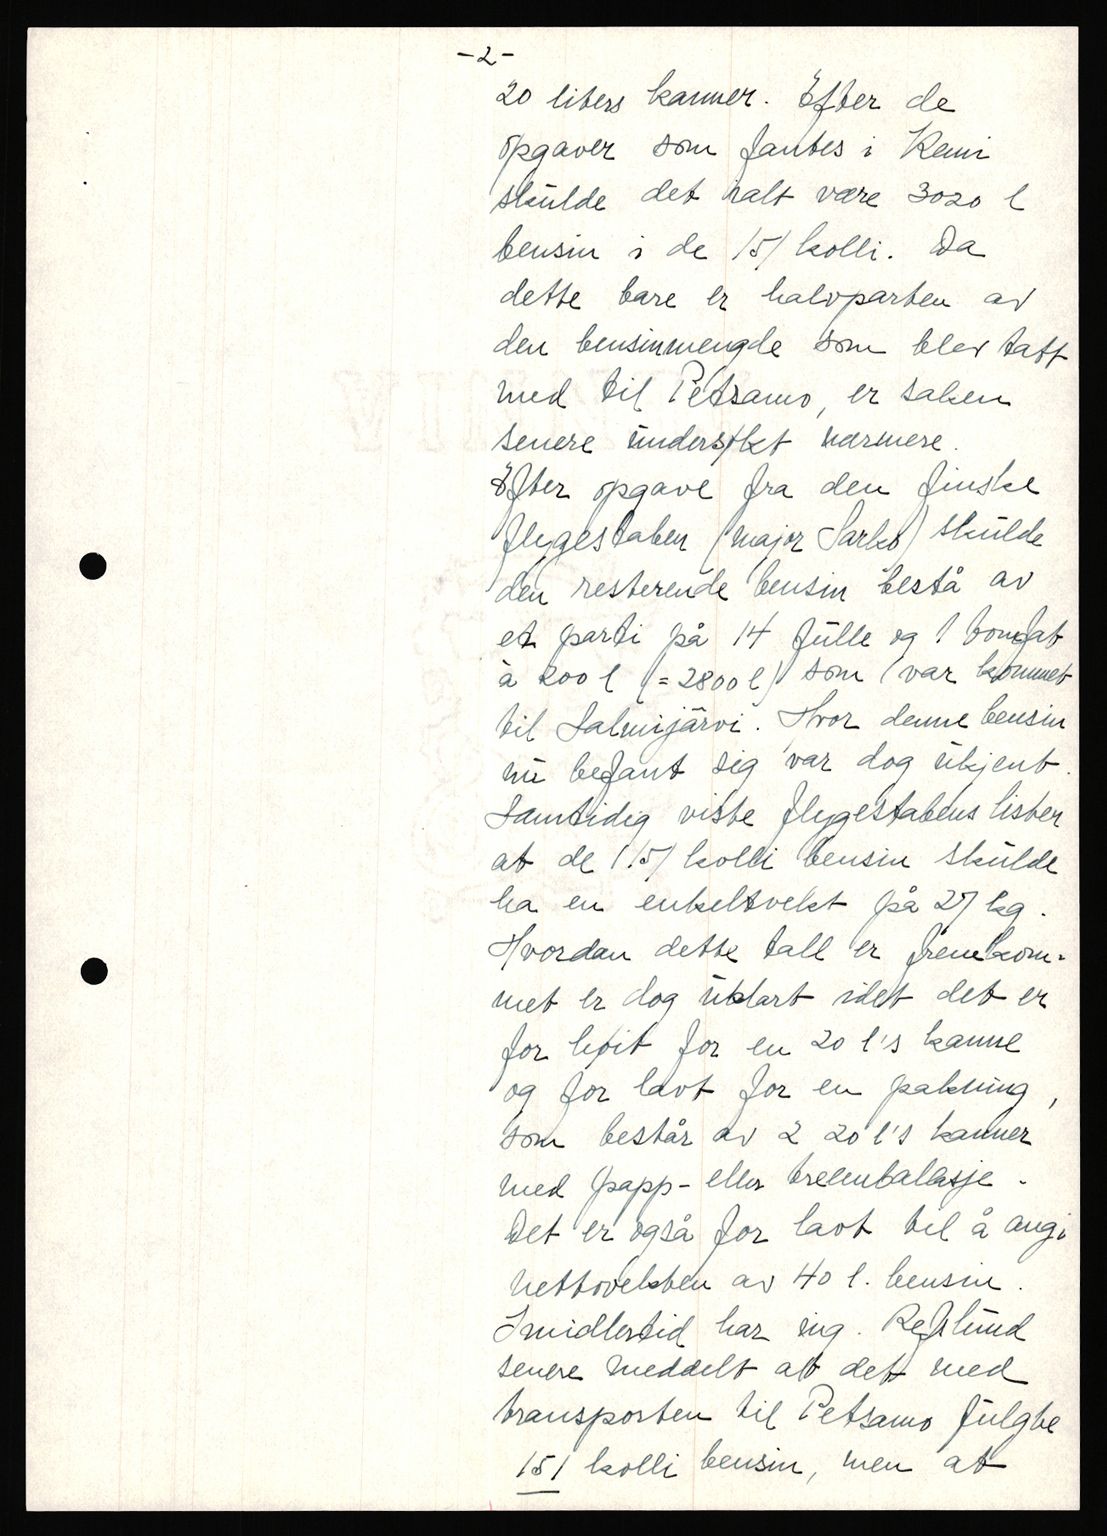 -2-
20 liters kanner. Efter de
opgaver som fantes i Kemi
skulde det ialt være 3020 l
bensin i de 151 kolli. Da
dette bare er halvparten av
den bensinmengde som blev tatt
med til Petsamo, er saken
senere undersøkt nærmere.
Efter opgave fra den finske
flygestaben (major Sarko) skulde
den resterende bensin bestå av
et parti på 14 fulle og 1 tomfat
à 200 l (= 2800 l) som var kommet
til Salmijärvi. Hvor denne bensin
nu befant sig var dog ukjent.
Samtidig viste flygestabens lister
at de 151 kolli bensin skulde
ha en enkeltvekt på 27 kg.
Hvordan dette tall er fremkom-
met er dog uklart idet det er
for høit for en 20 l's kanne
og for lavt for en pakning,
som består av 2 20 l's kanner
med papp- eller treembalasje.
Det er også for lavt til å angi
nettovekten av 40 l. bensin.
Imidlertid har ing. Refslund
senere meddelt at det med
transporten til Petsamo fulgte
151 kolli bensin, men at